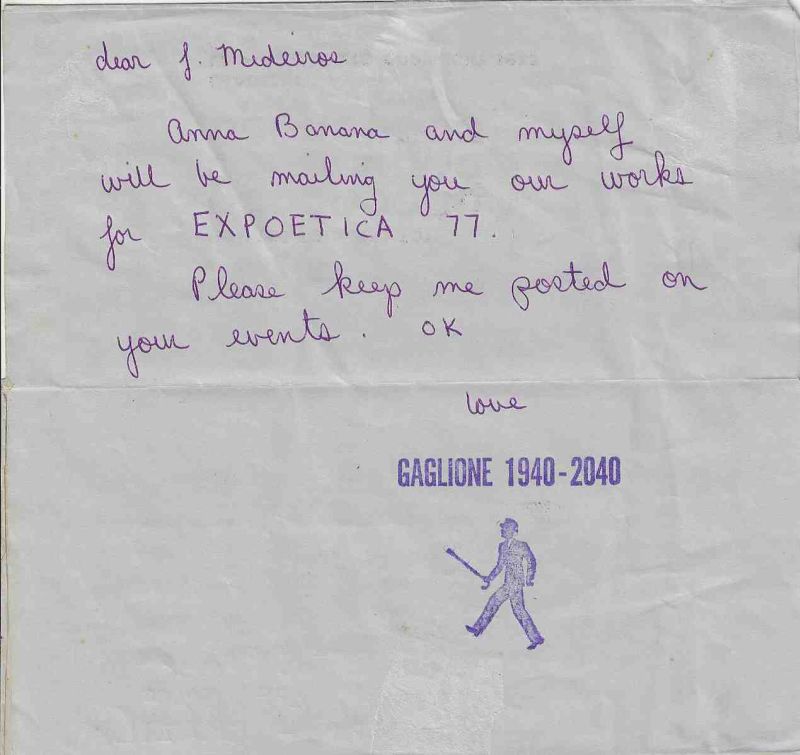 dear J. Medeiros
Anna Banana and myself
will be mailing you our works
for EXPOETICA 77.
Please keep me posted on
your events. OK
love
GAGLIONE 1940-2040